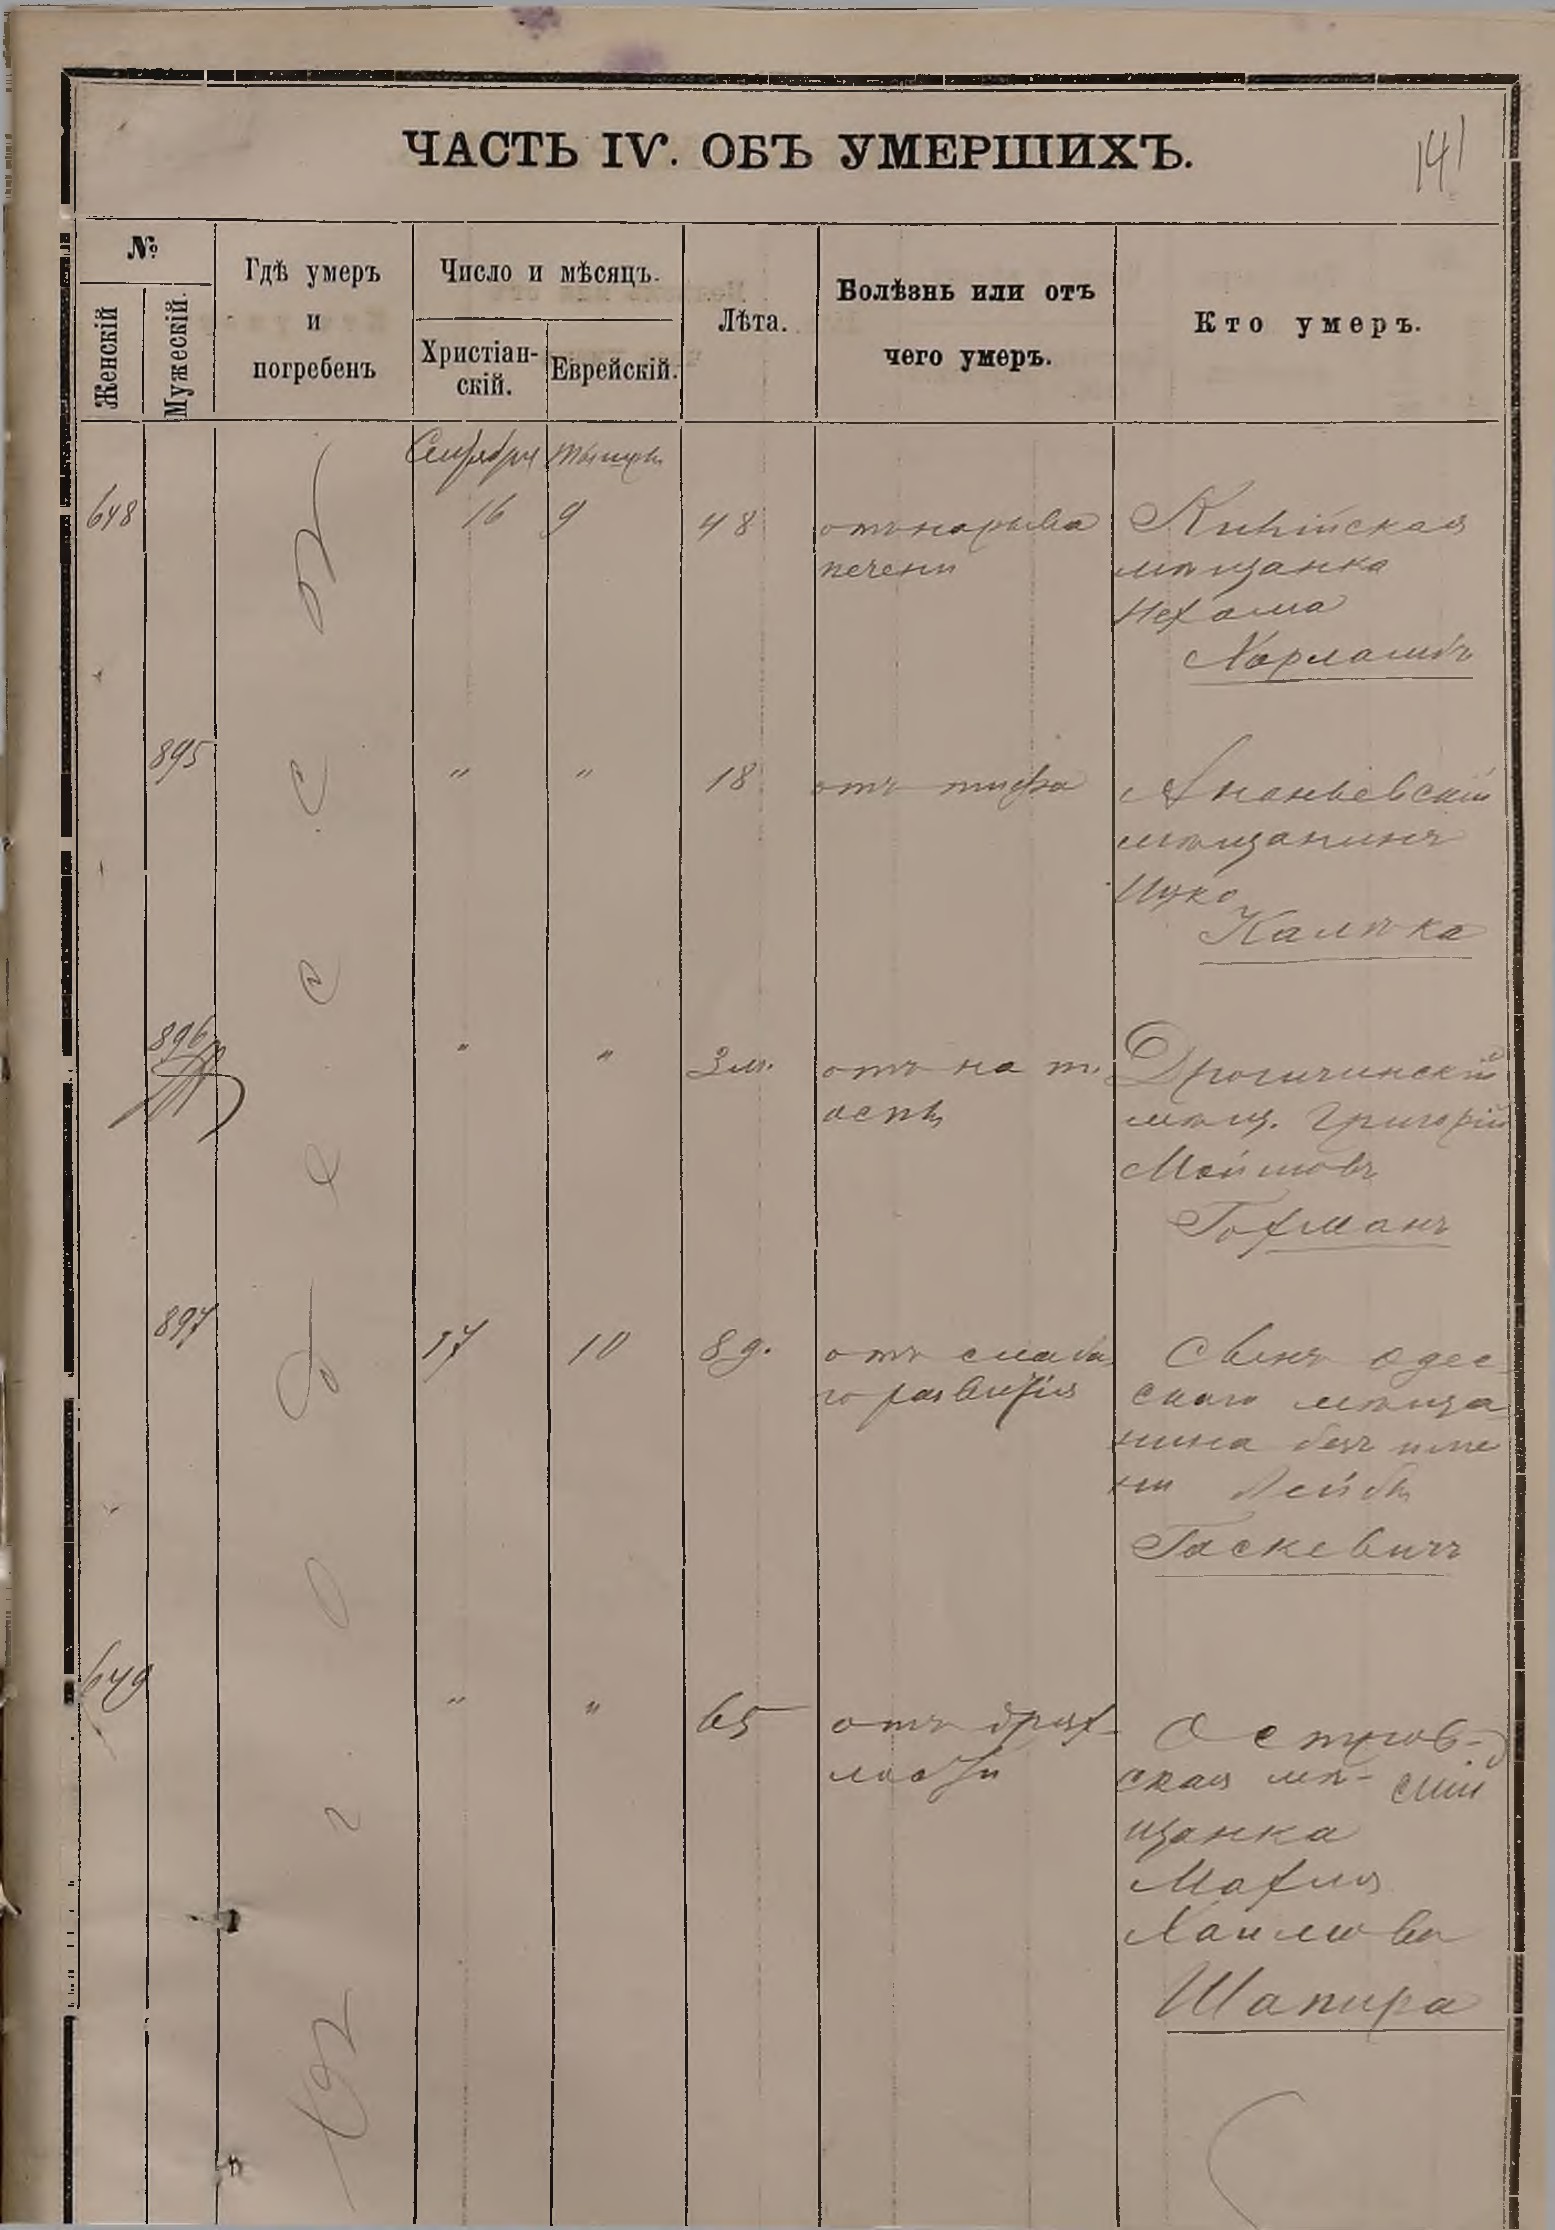 ЧАСТЬ IV. ОБЪ УМЕРШИХЪ.
141
№
Женскій
Мужескій.
Гдѣ умеръ
и
погребенъ
Число и мѣсяцъ.
Христіан-
скій.
Еврейскій.
Лѣта.
Болѣзнь или отъ
чего умеръ.
Кто умеръ.
въ г. Одессѣ
648
16
9
48
отъ нарыва
печени
мѣщанка
Нехама
895
"
"
18
отъ тифа
Ананьевскій
мѣщанинъ
Ицко
Калѣка
896
"
"
3 м.
отъ нат.
оспы
Дрогичинскій
мѣщ. Григорій
Мошковъ
Гохманъ
897
17
10
8 д.
отъ слаба
го развитія
Сынъ одес
скаго мѣща
нина безъ име
ни Лейбы
Гаскевичъ
649
"
"
65
отъ дрях-
лости
Островс-
ская мѣ-
щанка
Махля
Хаимова
Шапира